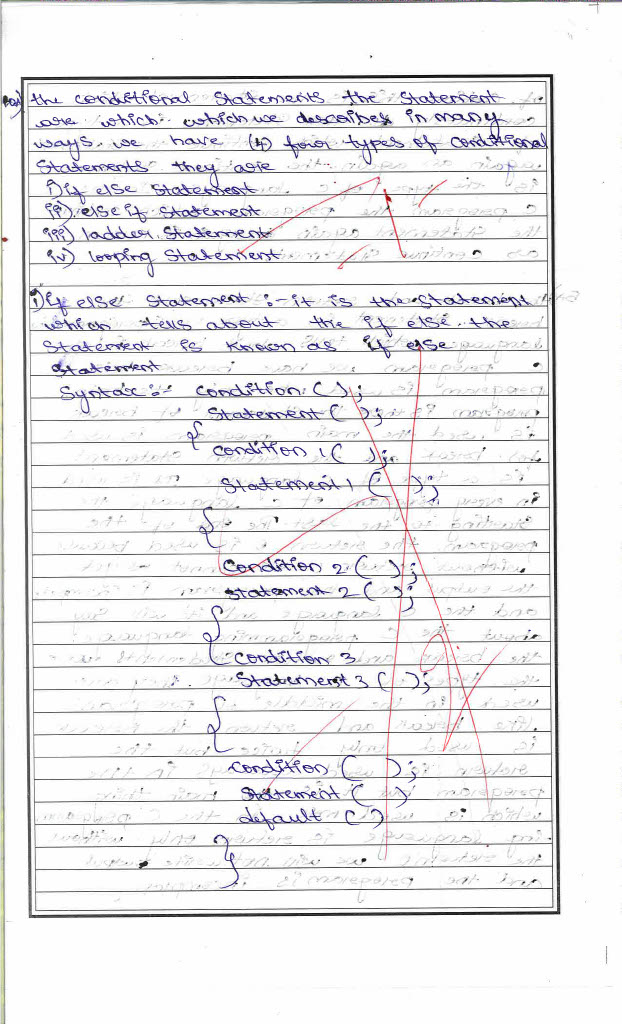 the conditional statements the statement
are which which we describes in many
ways. we have (4) four types of conditional
statements they are
i) if else statement
ii) else if statement
iii) ladder statement
iv) looping statement
i) if else statement :- it is the statement
which tells about the if else. the
statement is known as if else
statement
Syntax :- condition ( );
statement ( );
{
condition 1 ( );
statement 1 ( );
{
condition 2 ( );
statement 2 ( );
{
condition 3
statement 3 ( );
{
condition ( );
statement ( )
default ( )
}